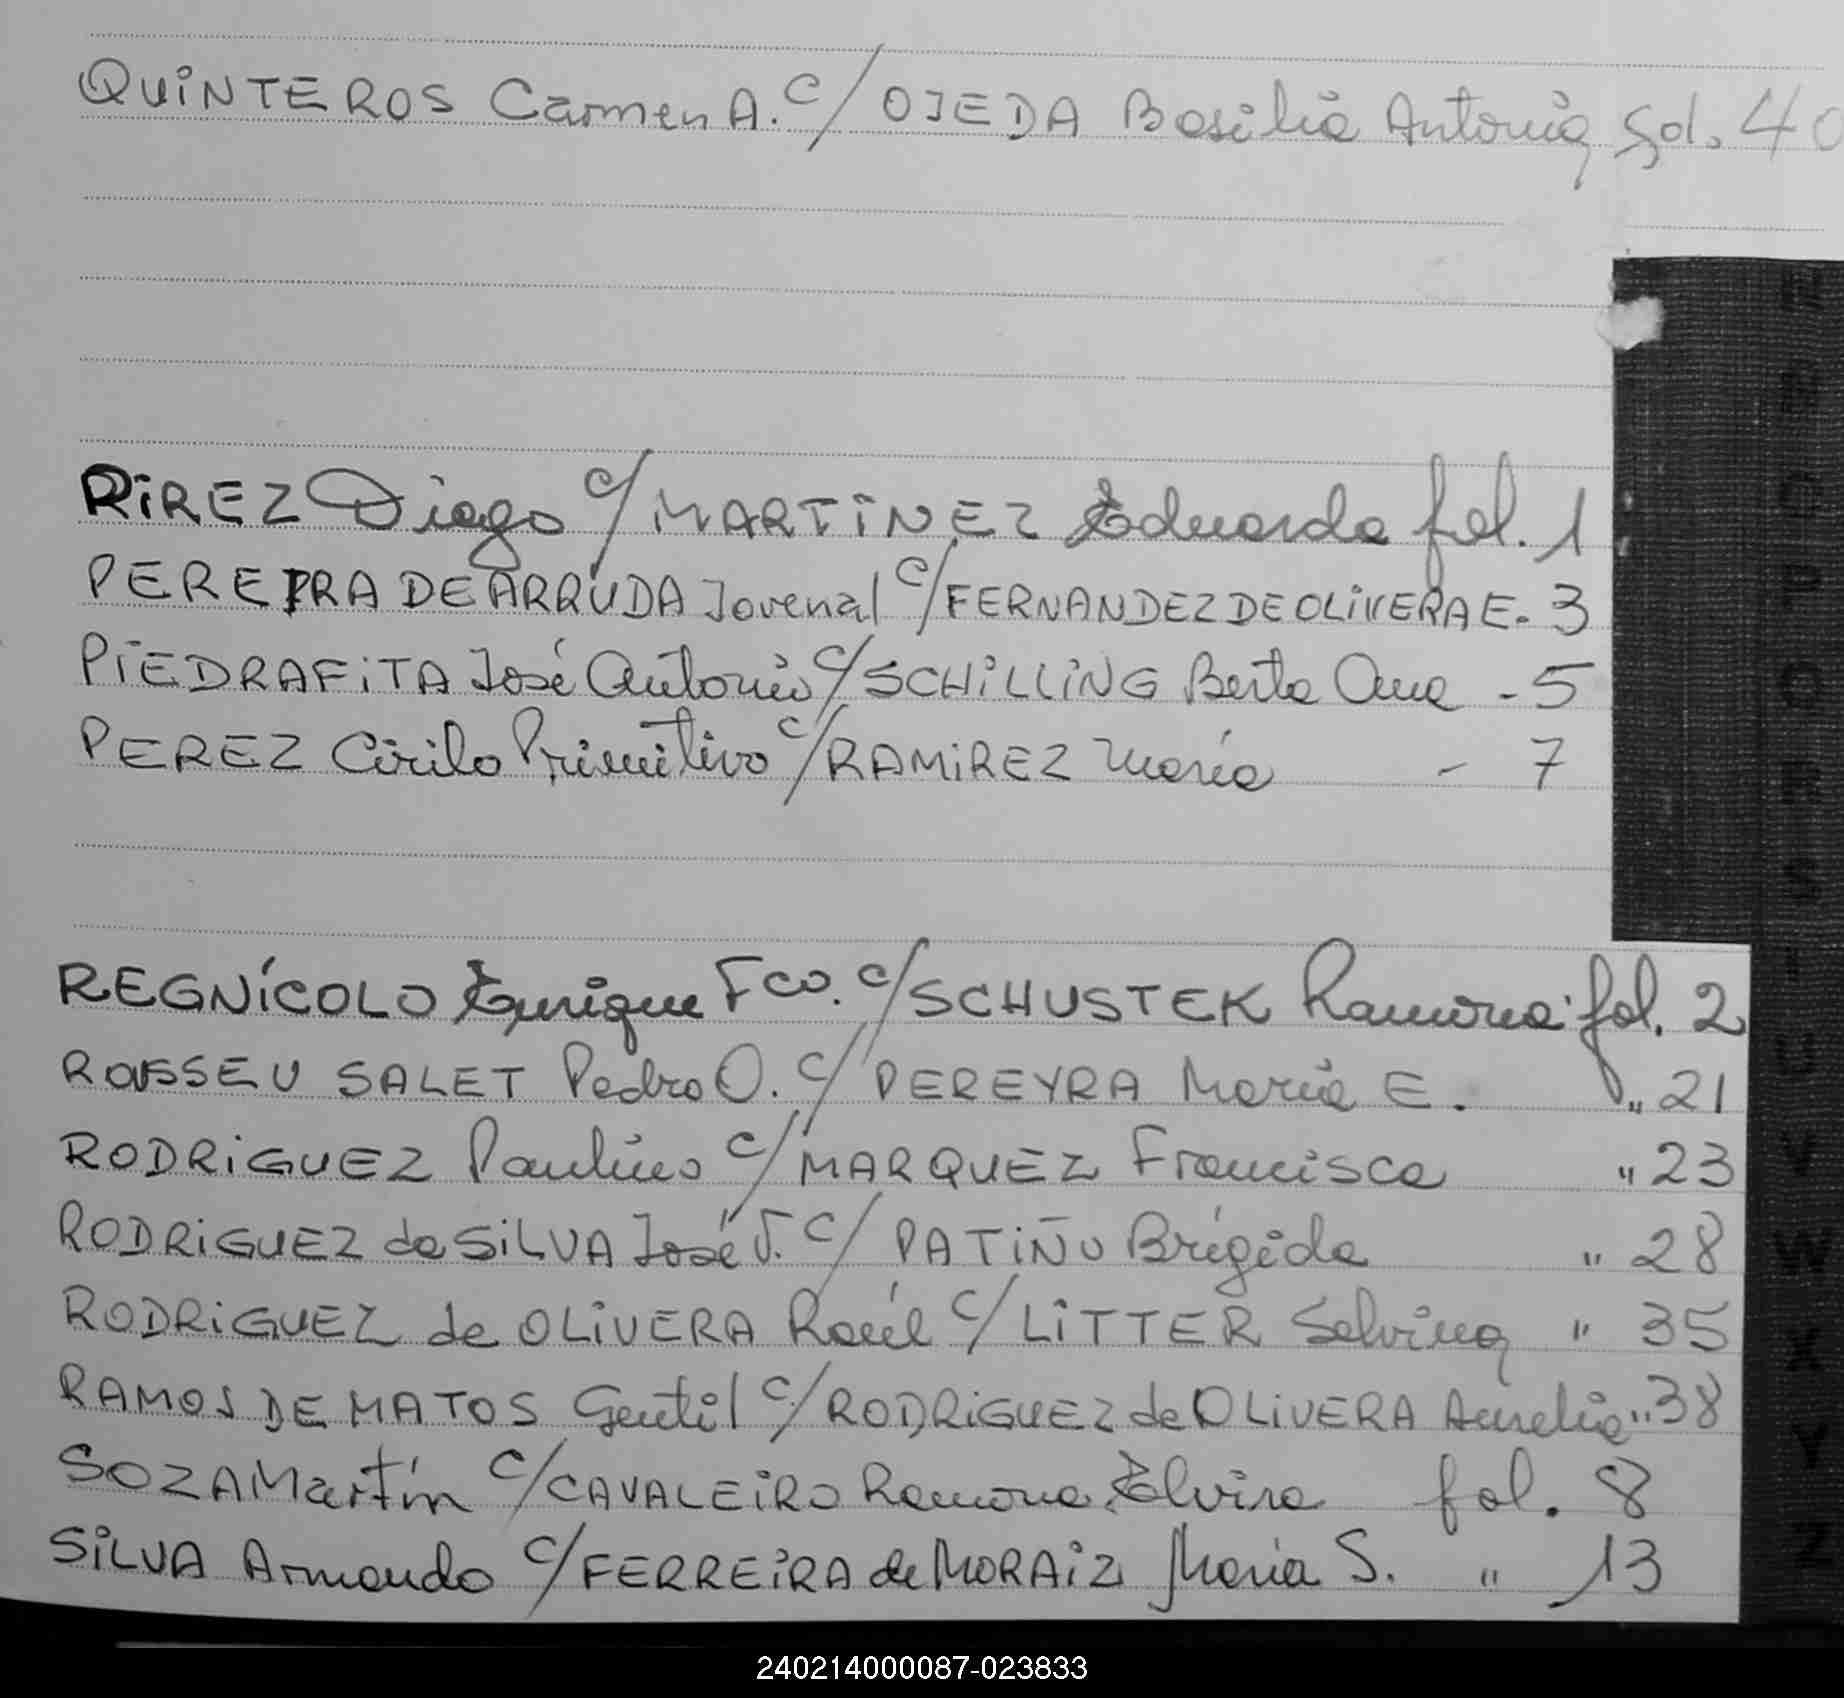 QUINTEROS Carmen A. c/ OJEDA Basilia Antonia fol. 40
RIREZ Diego c/ MARTINEZ Eduarda fol. 1
PEREIRA DE ARRUDA Jovenal c/ FERNANDEZ DE OLIVERA E. 3
PIEDRAFITA José Antonio c/ SCHILLING Berta Ana - 5
PEREZ Cirilo Primitivo c/ RAMIREZ María - 7
REGNÍCOLO Enrique Fco. c/ SCHUSTEK Ramona fol. 2
ROUSSEU SALET Pedro O. c/ PEREYRA Maria E. " 21
RODRIGUEZ Paulino c/ MARQUEZ Francisca " 23
RODRIGUEZ da SILVA José J. c/ PATIÑO Brígida " 28
RODRIGUEZ de OLIVERA Raúl c/ LITTER Selvina " 35
RAMOS DE MATOS Gentil c/ RODRIGUEZ de OLIVERA Aurelia " 38
SOZA Martín c/ CAVALEIRO Ramona Elvira fol. 8
SILVA Armando c/ FERREIRA de MORAIZ María S. " 13
240214000087-023833